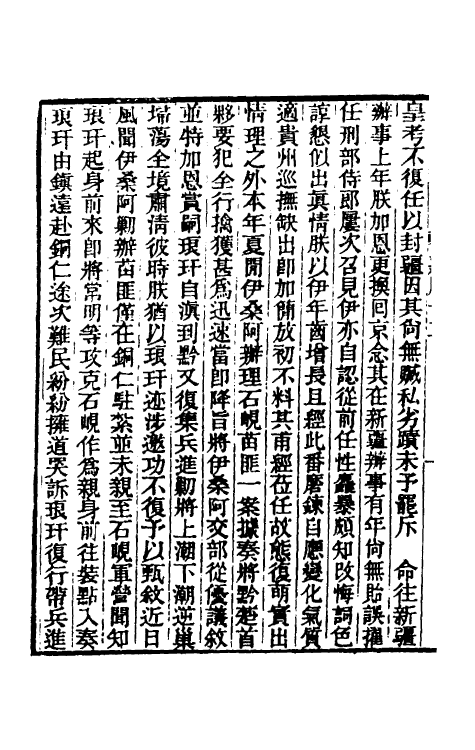 皇考不復任以封疆因其尙無贓私劣蹟未予罷斥　命往新疆
辦事上年朕加恩更換囘京念其在新疆辦事有年尙無貽誤擢
任刑部侍郎屢次召見伊亦自認從前任性麤暴頗知改悔詞色
諄懇似出眞情朕以伊年齒增長且經此番磨鍊自應變化氣質
適貴州巡撫缺出卽加簡放初不料其甫經莅任故態復萌實出
情理之外本年夏閒伊桑阿辦理石峴苗匪一案據奏將黔楚首
夥要犯全行擒獲甚爲迅速當卽降旨將伊桑阿交部從優議敘
並特加恩賞嗣琅玕自滇到黔又復集兵進勦將上潮下潮逆巢
埽蕩全境肅淸彼時朕猶以琅玕迹涉邀功不復予以甄敘近日
風聞伊桑阿勦辦苗匪僅在銅仁駐紮並未親至石峴軍營聞知
琅玕起身前來卽將常明等攻克石峴作爲親身前往裝點入奏
琅玕由鎭遠赴銅仁途次難民紛紛擁道哭訴琅玕復行帶兵進